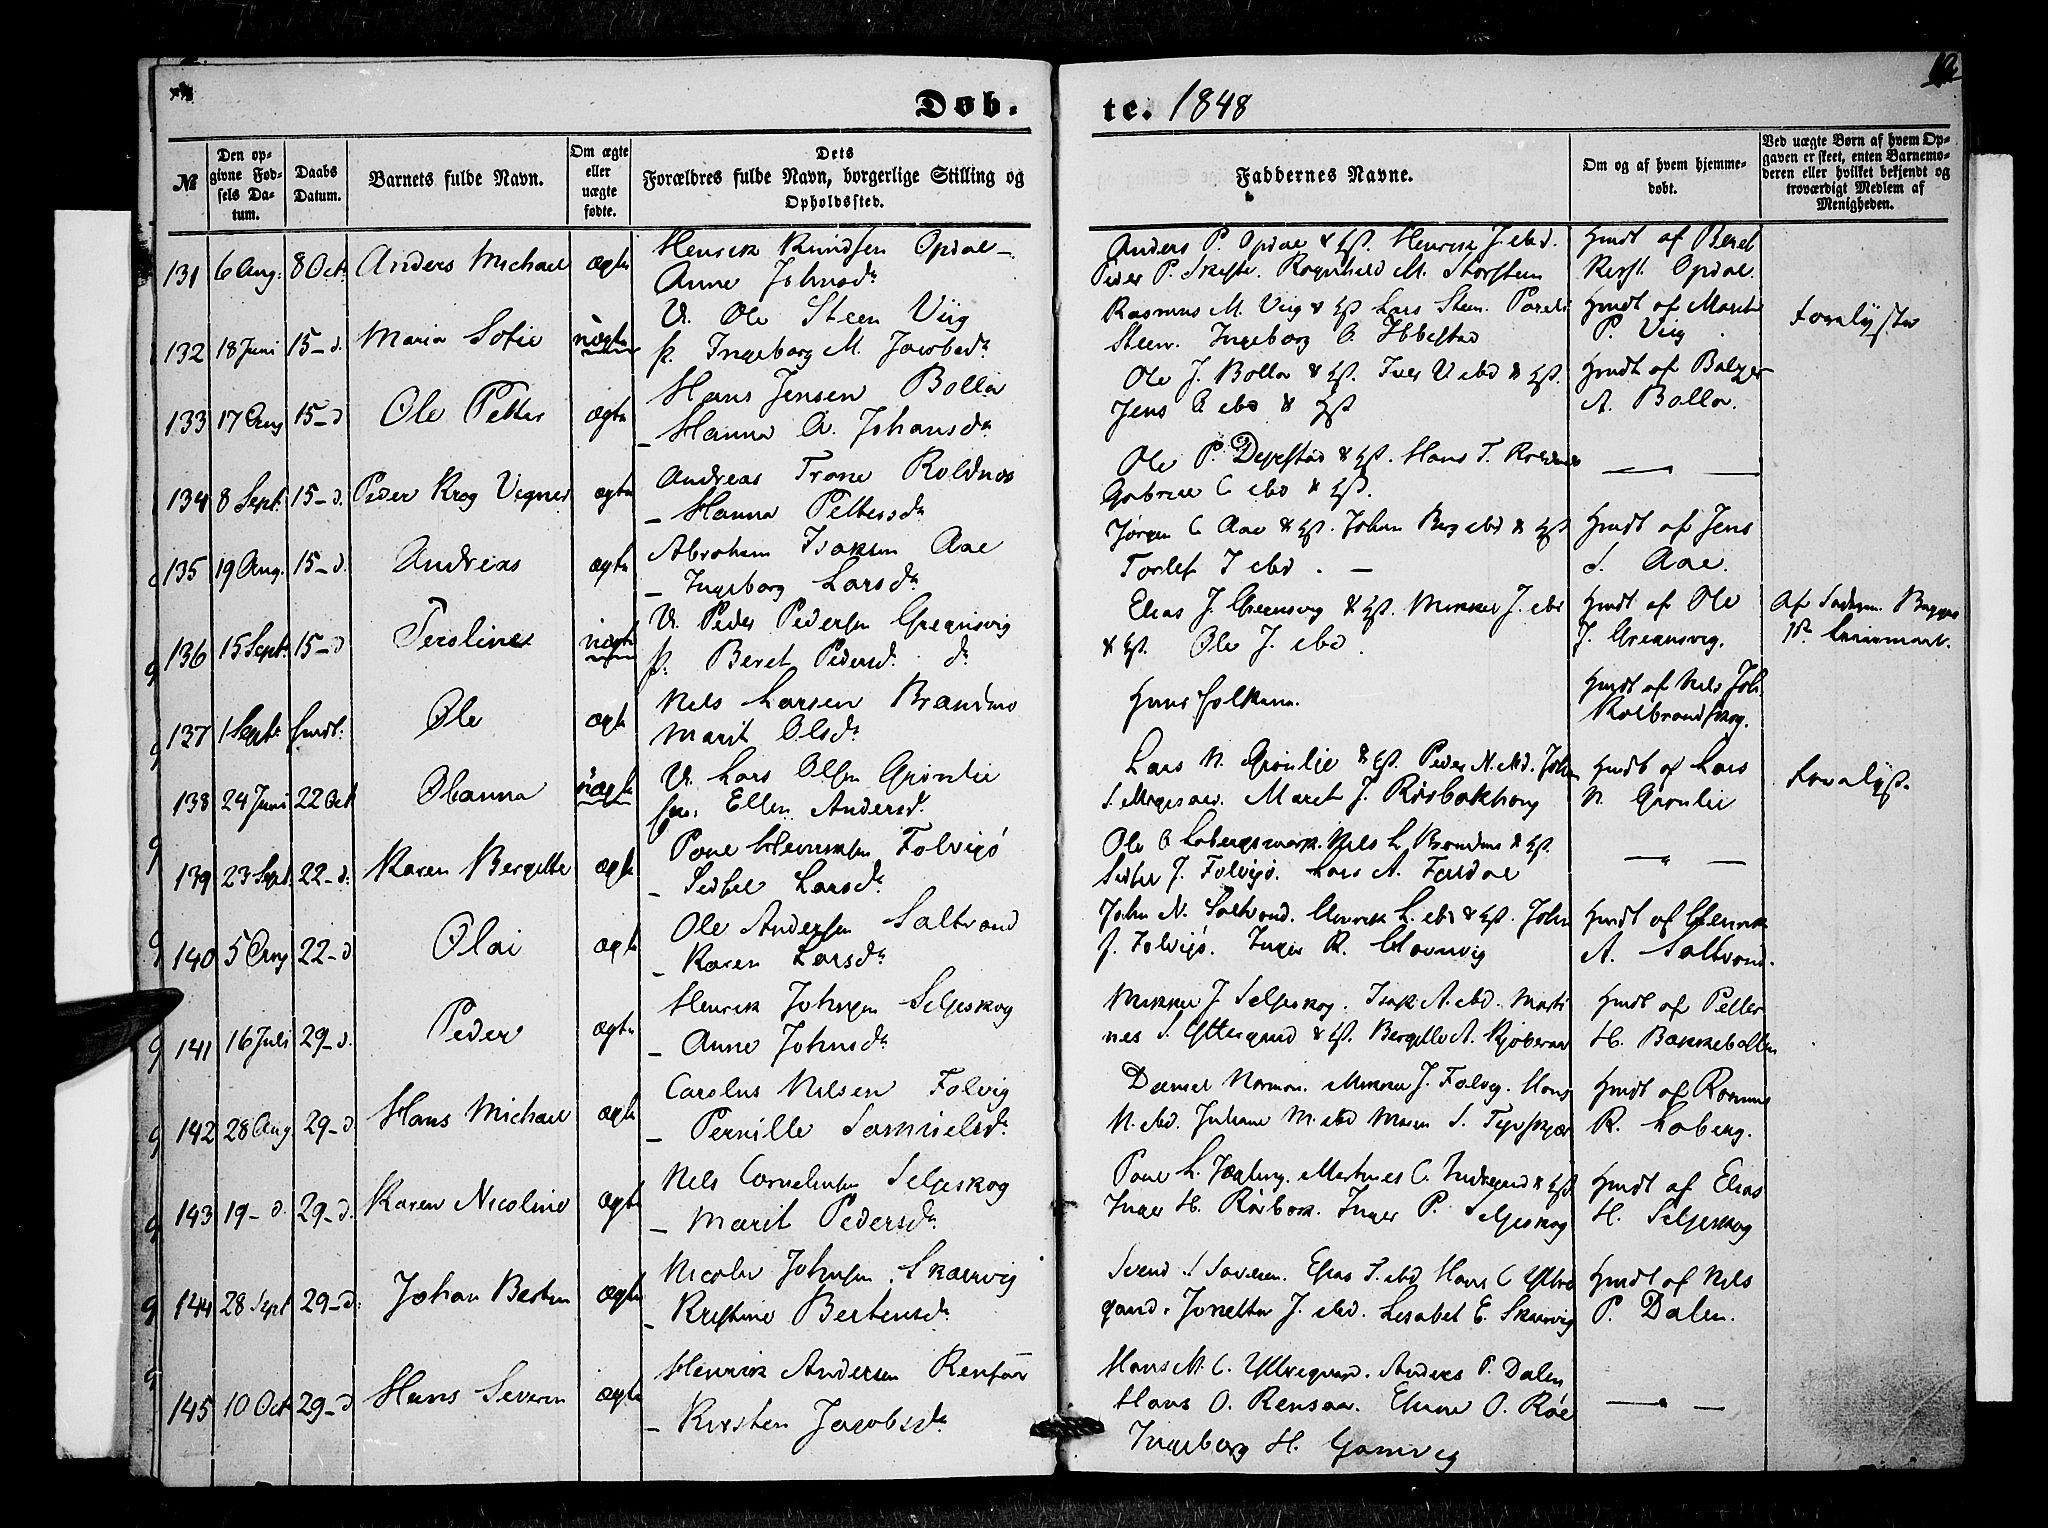 Døb.
te. 1848
12
№
Den opgivne Fødsels Datum.
Daabs Datum.
Barnets fulde Navn.
Om ægte eller uægte fødte.
Dets Forældres fulde Navn, borgerlige Stilling og Opholdssted.
Faddernes Navne.
Om og af hvem hjemmedøbt.
Ved uægte Børn af hvem Opgaven er skeet, enten Barnemoderen eller hvilket bekjendt og troværdigt Medlem af Menigheden.
131 6 Aug. 8 Oct. Anders Michael ægte
Henrik Knudsen Opdal
Anne Johnsd.
Anders P. Opdal & Hst. Henrik J. ebd.
Peder P. Ragnhild M. Storsteen
Hmdt af Beret
Opdal.
132 18 Juni 15 - d. Maria Sofie uægte
U. Ole Steen Viig
p. Ingeborg M. Jacobsd.
Rasmus M. Viig & Hst. Lars Steen.
Steen. Ingeborg O. Ibbestad
Hmdt af Marit
P. Viig
133 17 Aug 15 - d Ole Petter ægte
Hans Jensen Bolla
- Hanna A. Johansd.
Ole J. Bolla & Hst. Iver ebd & Hst.
Jens O. ebd & Hst
Hmdt af Balzer
A. Bolla.
134 8 Sept. 15 - d. Peder Krog Vegner ægte
Andreas Trane Roldnes
- Hanna Pettersd.
Ole P. & Hst. Hans T.
Gabriel C. ebd & Hst.
135 19 Aug. 15 - d. Andreas ægte
Abraham Isaksen Aae
- Ingeborg Larsd.
Jørgen C. Aae & Hst. Johan Berg ebd & Hst
Torlef I ebd. -
Hmdt af Jens
S. Aae.
136 15 Sept. 15 - d uægte
U. Peder Pedersen Grønsvig
p. Beret Pedersd. d.
Elias J. & Hst. Mikkel J. ebd
& Hst. Ole J. ebd.
Hmdt af Ole
J.
137 1 Sept. hmdt. Ole ægte
Nels Larsen Brandmo
Marit Olsd.
Huusfolkene.
Hmdt af Nels Joh.
138 24 Juni 22 Oct Olianna uægte
U. Lars Olsen Grønlie
Ellen Andersd.
Lars N. Grønlie & Hst. Peder N. ebd. John
Maret J. Rørbakhaug
Hmdt af Lars
N. Grønlie
139 23 Sept. 22 - d. Karen Bergitte ægte
Poul Henriksen Folvigø
- Sedsel Larsd.
Ole O. Nels L. Brandmo & Hst.
Sedsel J. Folvigø. Lars A.
140 5 Aug 22 - d Olai ægte
Ole Andersen Saltvand
- Karen Larsd.
John N. Saltvand. Henrik L. ebd & Hst. John
J. Folvigø. Inger K.
Hmdt af Henrik
A. Saltvand.
141 16 Juli 29 - d. Peder ægte
Henrik Johnsen Seljeskog
- Anne Johnsd.
Mikkel J. Seljeskog. Isak A. ebd. Marti
nes S. Yttergaard & Hst. Bergitte A.
Hmdt af Petter
H. Bakkebollen
142 28 Aug 29 - d. Hans Michael ægte
Carolus Nilsen Folvig
- Pernille Samuelsd.
Daniel Norman. Mikkel J. Folvig. Hans
N. ebd. Juliane M. ebd Maren S.
Hmdt af Rasmus
R. Laberg.
143 19 - d. 29 - d. Karen Nicoline ægte
Nels Corneliusen Seljeskog
- Marit Pedersd.
Poul L. Martines C. & Hst
Inger H. Rørbak. Inger P. Seljeskog
Hmdt af Elias
H. Seljeskog
144 28 Sept 29 - d. Johan Berten ægte
Nicolai Johnsen Skarvig
- Kristine Bertensd.
Svend S. Elias T. ebd Hans C. Yttre
gaard. Jonetta J. ebd. Lisabet E. Skarvig
Hmdt af Nils
P. Dalen.
145 10 Oct 29 - d Hans Severin ægte
Henrik Andersen Rensaa
- Kirsten Jacobsd.
Hans M. C. Yttregaard. Anders P. Dalen
Hans O. Rensaa. O. Røe
Ingeborg H. Gamvig